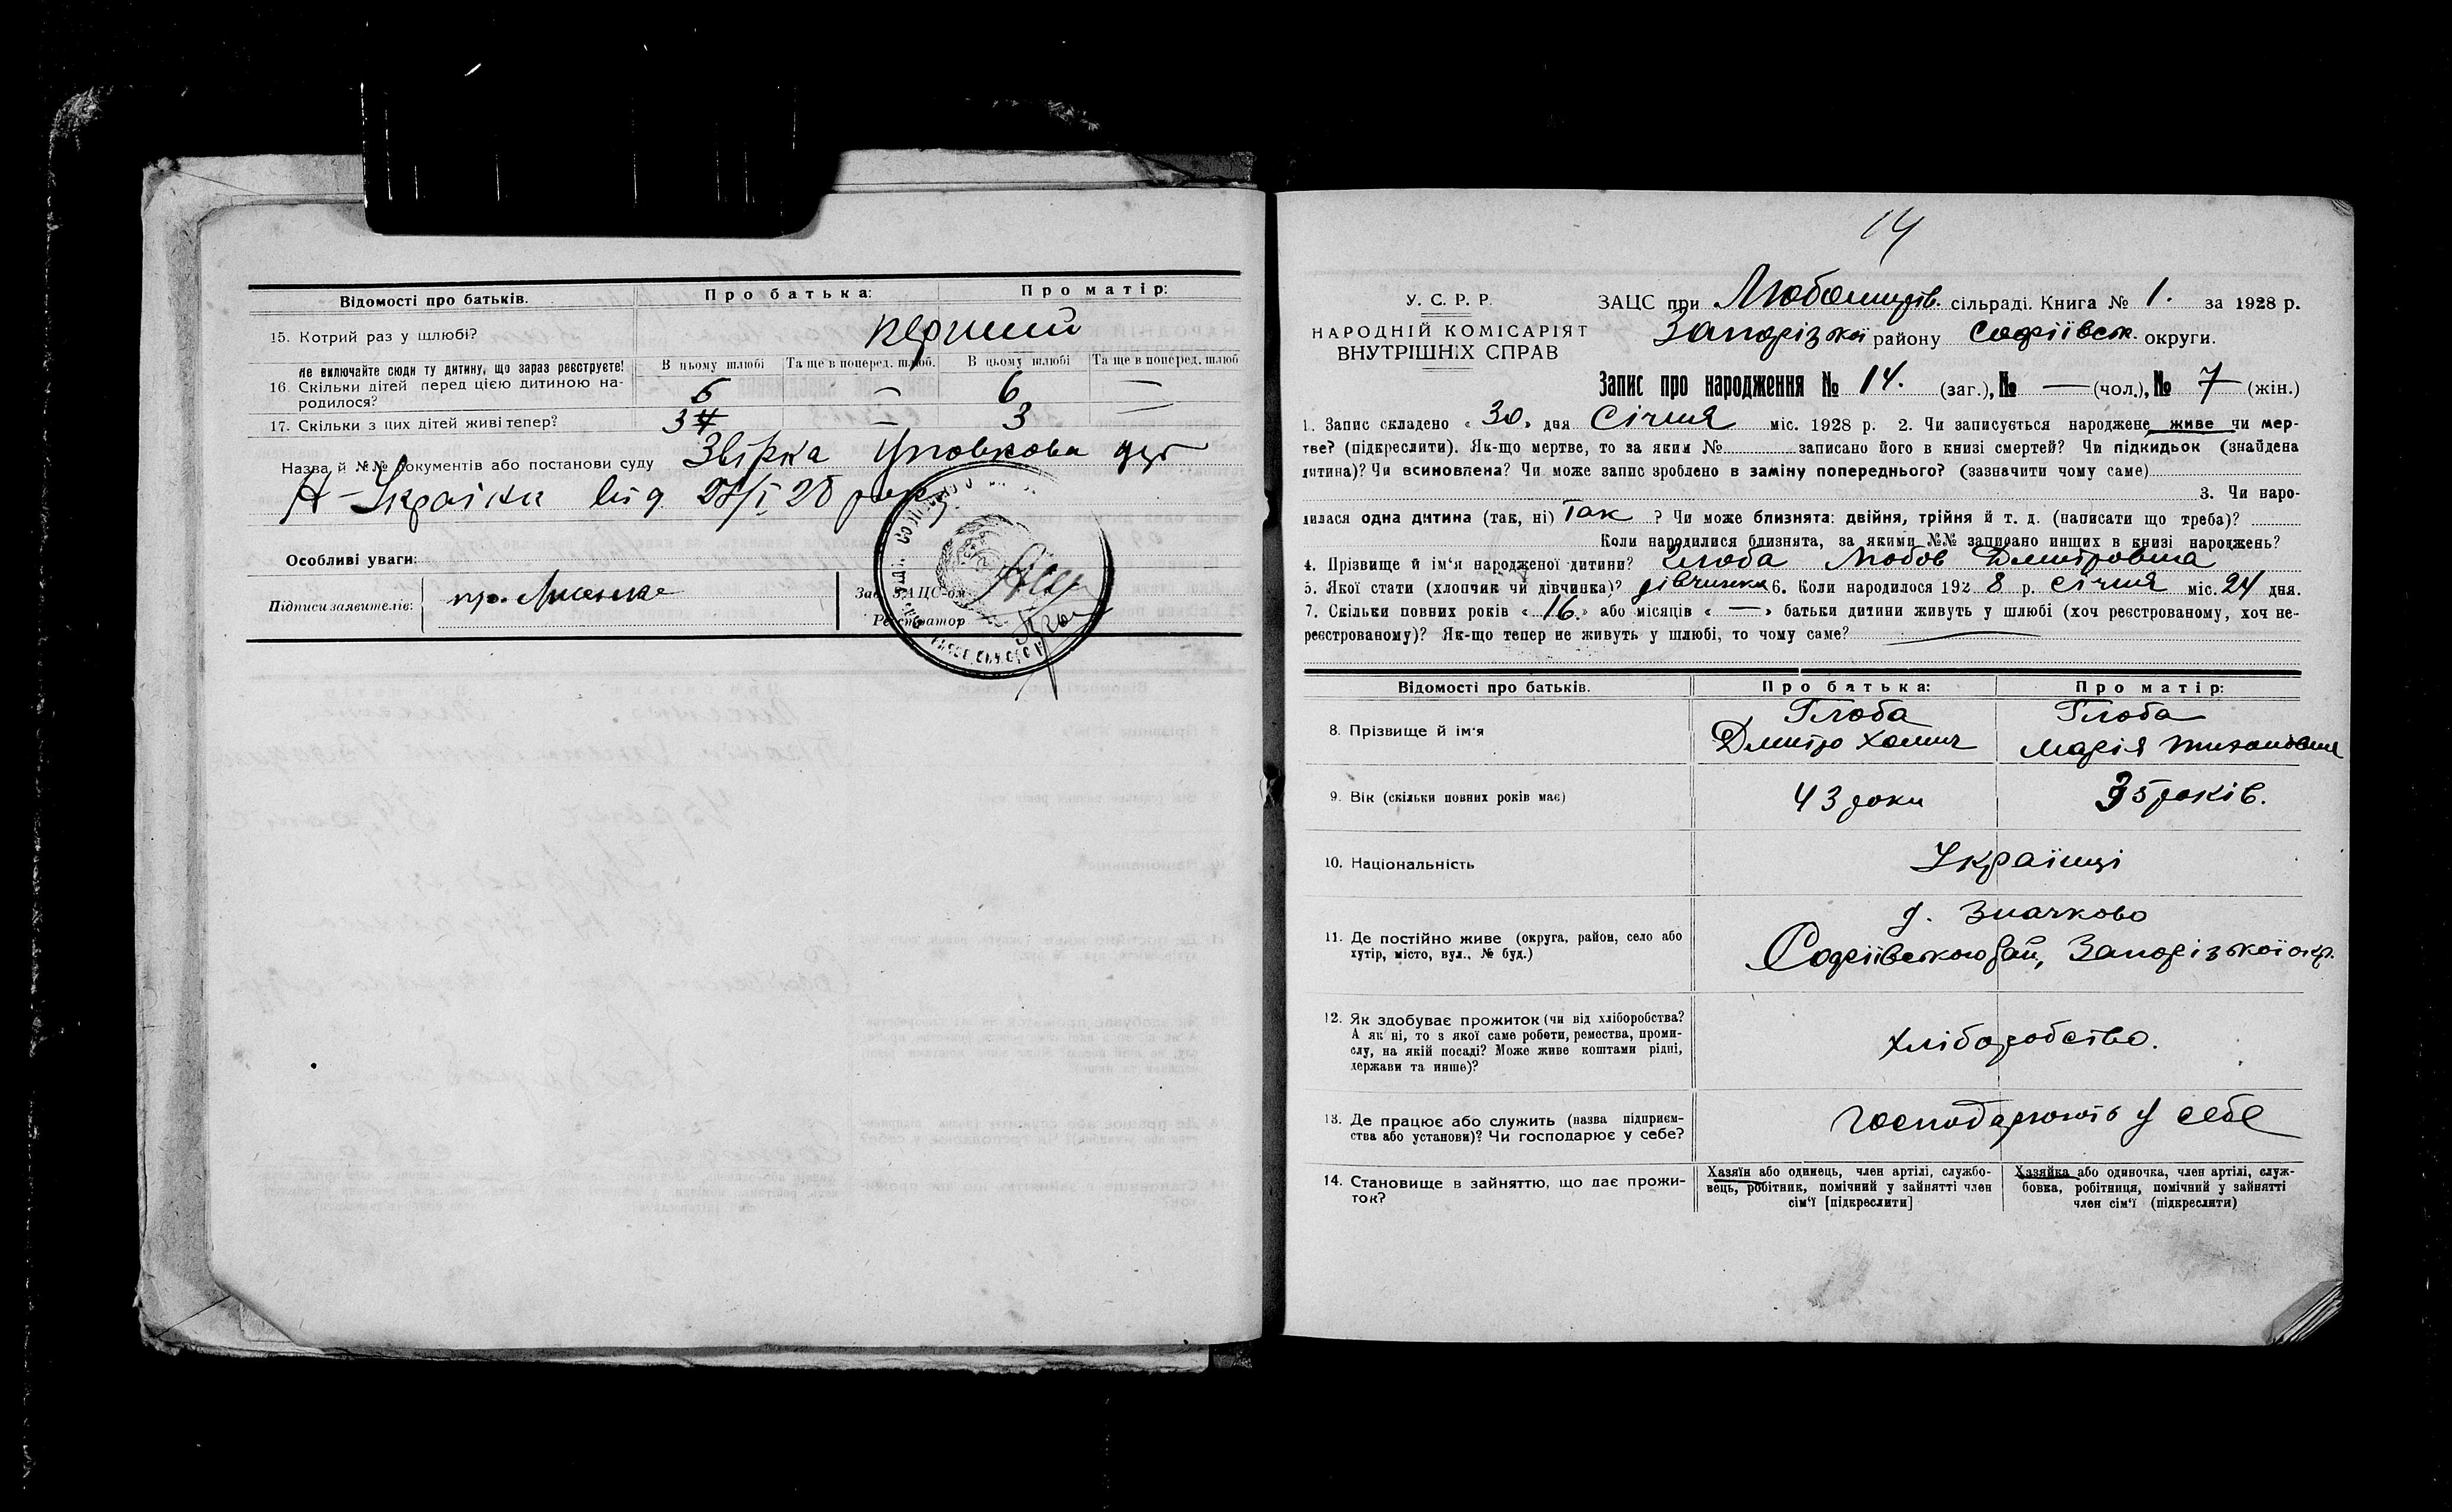 Відомості про батьків. Про батька: Про матір:
15. Котрий раз у шлюбі? перший
Не включайте сюди ту дитину, що зараз реєструєте! В цьому шлюбі Та ще в поперед. шлюб. В цьому шлюбі Та ще в поперед. шлюб
16. Скільки дітей перед цією дитиною на-
родилося? 6 — 6 —
17. Скільки з цих дітей живі тепер? 3 — 3 —
Назва й №№ документів або постанови суду Звірка
Н-Українки від 28/I 28 року
Особливі уваги:
Підписи заявителів: пр. Лисенко
Зав. ЗАЦС-ом
Реєстратор
14
У. С. Р. Р.
НАРОДНІЙ КОМІСАРІЯТ
ВНУТРІШНІХ СПРАВ
ЗАЦС при Любомирів. сільраді. Книга № 1. за 1928 р.
Запорізької району Софіївськ. округи.
Запис про народження № 14. (заг.), № — (чол.), № 7 (жін.)
1. Запис складено « 30 » дня Січня міс. 1928 р. 2. Чи записується народжене живе чи мер-
тве? (підкреслити). Як-що мертве, то за яким № записано його в книзі смертей? Чи підкидьок (знайдена
дитина)? Чи всиновлена? Чи може запис зроблено в заміну попереднього? (зазначити чому саме)
3. Чи наро-
дилася одна дитина (так, ні) Так ? Чи може близнята: двійня, трійня й т. д. (написати що треба)?
Коли народилися близнята, за якими №№ записано инших в книзі народжень?
4. Прізвище й ім'я народженої дитини? Глоба Любов Дмитровна
5. Якої стати (хлопчик чи дівчинка)? дівчинка 6. Коли народилося 192 8 р. січня міс. 24 дня.
7. Скільки повних років « 16 » або місяців « — » батьки дитини живуть у шлюбі (хоч реєстрованому, хоч не-
реєстрованому)? Як-що тепер не живуть у шлюбі, то чому саме? —
Відомості про батьків. Про батька: Про матір:
8. Прізвище й ім'я Глоба Дмитро Хомич Глоба Марія Тихоновна
9. Вік (скільки повних років має) 43 роки 35 років.
10. Національність Українці
11. Де постійно живе (округа, район, село або
хутір, місто, вул., № буд.) д. Значково
Софіївського рай, Запорізької окр.
12. Як здобуває прожиток (чи від хліборобства?
А як ні, то з якої саме роботи, ремества, проми-
слу, на якій посаді? Може живе коштами рідні,
держави та инше)? хліборобство.
13. Де працює або служить (назва підприєм-
ства або установи)? Чи господарює у себе? господарюють у себе
14. Становище в зайняттю, що дає прожи-
ток?
Хазяїн або одинець, член артілі, службо-
вець, робітник, помічний у зайнятті член
сім'ї [підкреслити]
Хазяйка або одиночка, член артілі, служ-
бовка, робітниця, помічний у зайнятті
член сім'ї (підкреслити)